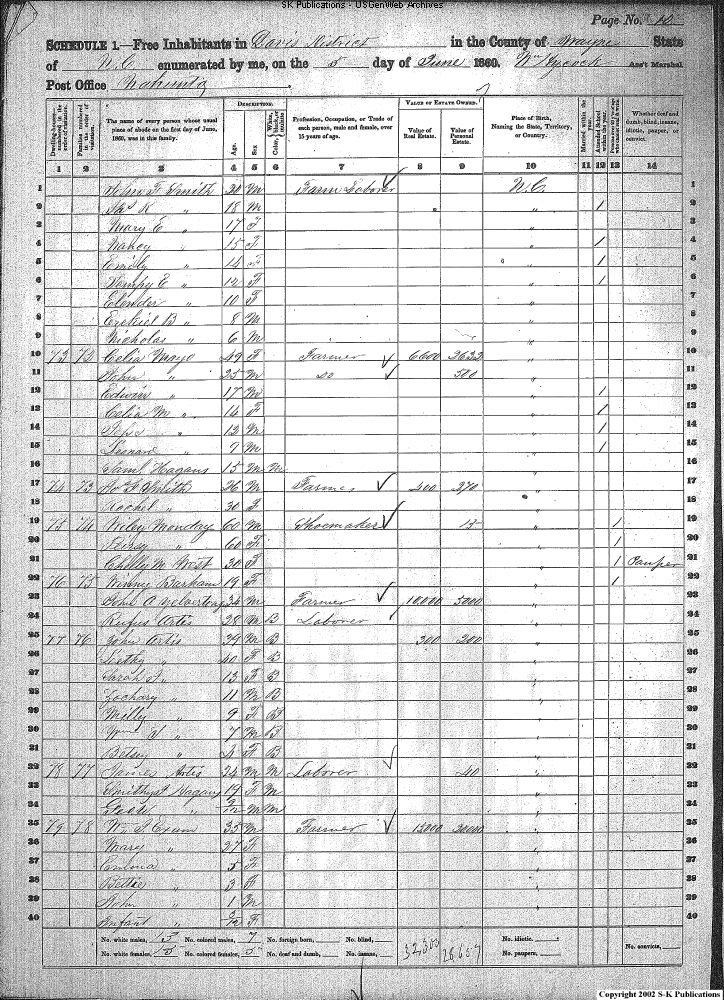 SK Publications - USGenWeb Archives
Page No. 10
SCHEDULE 1.—Free Inhabitants in Davis District in the County of Wayne State
of N.C enumerated by me, on the 5 day of June 1860. Wm Aycock Ass't Marshal
Post Office Nahunta
Dwelling-houses— numbered in the order of visitation.
Families numbered in the order of visitation.
The name of every person whose usual place of abode on the first day of June, 1860, was in this family.
DESCRIPTION.
Age.
Sex
Color, White, black, or mulatto
Profession, Occupation, or Trade of each person, male and female, over 15 years of age.
VALUE OF ESTATE OWNED.
Value of Real Estate.
Value of Personal Estate.
Place of Birth, Naming the State, Territory, or Country.
Married within the year.
Attended School within the year.
Whether deaf and dumb, blind, insane, idiotic, pauper, or convict.
1 2 3 4 5 6 7 8 9 10 11 12 13 14
1 John F Smith 20 M Farm Laborer N.C. 1
2 K " 18 M " / 2
3 Mary E " 17 F " 3
4 Nancy " 15 F " / 4
5 Emily " 14 F " / 5
6 E " 12 F " / 6
7 Elender " 10 F " 7
8 Ezekiel B " 8 M " 8
9 Nicholas " 6 M " 9
10 73 72 Celia Mayo 49 F Farmer 6600 3632 " 10
11 John " 25 M do 500 " 11
12 Edwin " 17 M " / 12
13 Celia M " 14 F " / 13
14 " 12 M " / 14
15 Leonard " 9 M " / 15
16 Saml Hagans 15 M M " 16
17 74 73 Smith 26 M Farmer 400 370 " 17
18 Rachel " 30 F " 18
19 75 74 Wiley Monday 60 M Shoemaker 15 " / 19
20 " 60 F " / 20
21 M West 30 F " / Pauper 21
22 76 75 Winny Barham 19 F " / 22
23 John A Yelverton 34 M Farmer 10,000 5000 " 23
24 Rufus Artis 28 M B Laborer " 24
25 77 76 John Artis 39 M B 300 200 " 25
26 " 40 F B " 26
27 Sarah J. " 13 F B " 27
28 Zachary " 11 M B " 28
29 Milly " 9 F B " 29
30 Wm " 7 M B " 30
31 Betsey " 4 F B " 31
32 78 77 James Artis 34 M M Laborer 40 " 32
33 Hagans 19 F M " 33
34 " M M " 34
35 79 78 Wm Exum 35 M Farmer 15000 20000 " 35
36 Mary " 27 F " 36
37 Emma " 5 F " 37
38 Bettie " 3 F " 38
39 John " 1 M " 39
40 Infant " 3/12 F " 40
No. white males, 13 No. colored males, 7 No. foreign born, No. blind, 32,300 28,657 No. idiotic,
No. white females, 15 No. colored females, 5 No. deaf and dumb, No. insane, No. paupers, No. convicts,
Copyright 2002 S-K Publications